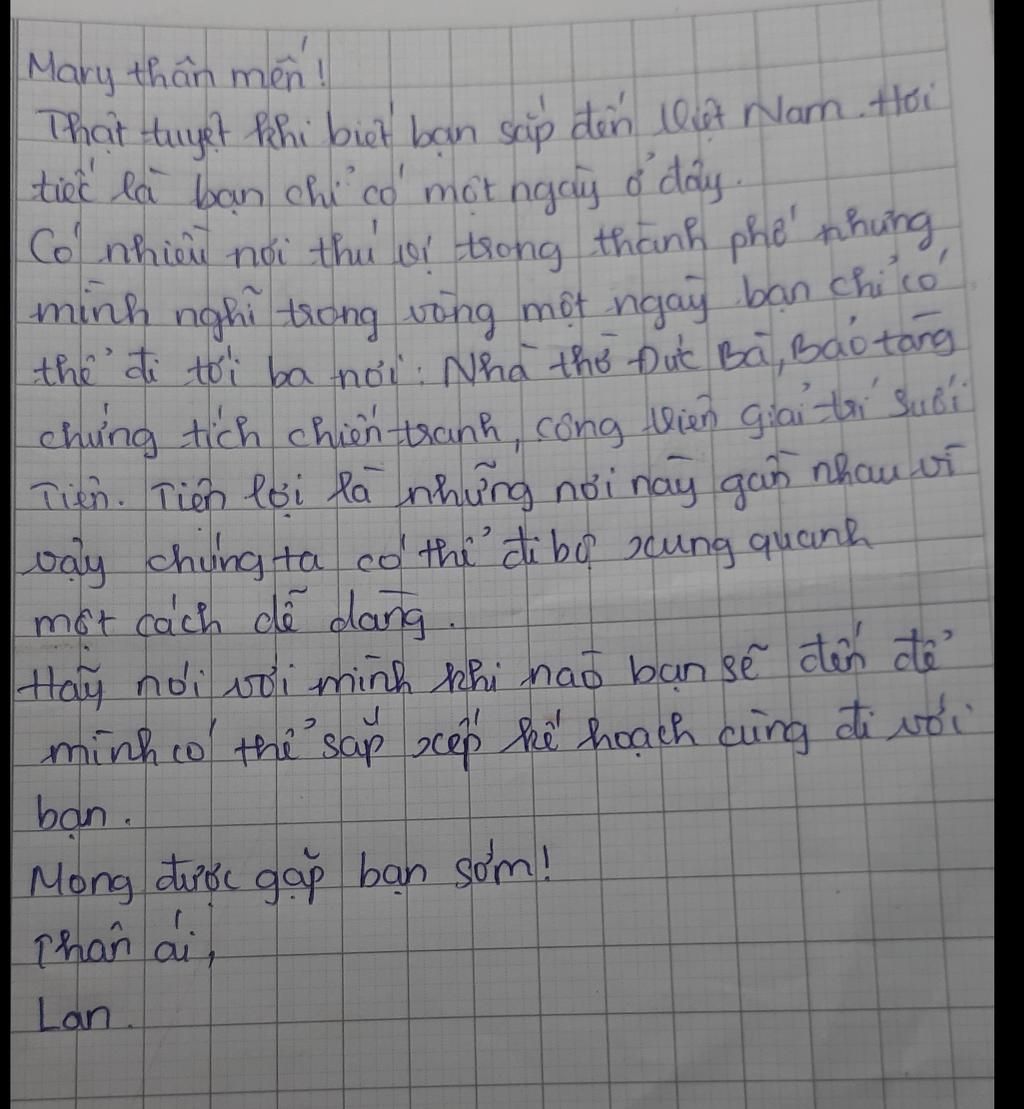 Mary thân mến!
Thật tuyệt khi biết bạn sắp đến Việt Nam. Hơi
tiếc là bạn chỉ có một ngày ở đây.
Có nhiều nơi thú vị trong thành phố nhưng
mình nghĩ trong vòng một ngày bạn chỉ có
thể đi tới ba nơi: Nhà thờ Đức Bà, Bảo tàng
chứng tích chiến tranh, công viên giải trí Suối
Tiên. Tiện lợi là những nơi này gần nhau vì
vậy chúng ta có thể đi bộ xung quanh
một cách dễ dàng.
Hãy nói với mình khi nào bạn sẽ đến để
mình có thể sắp xếp kế hoạch cùng đi với
bạn.
Mong được gặp bạn sớm!
Thân ái,
Lan.